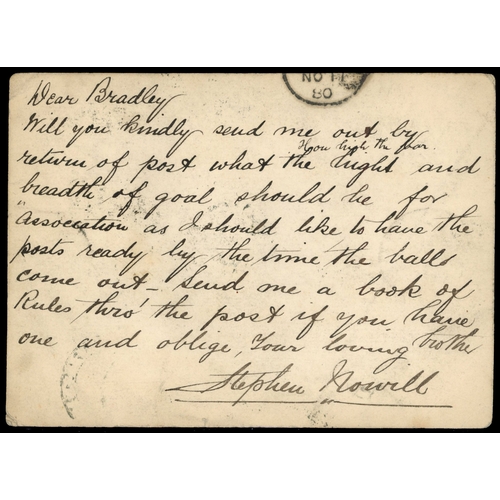 NO 11
80
Dear Bradley
Will you kindly send me out by
How high the bar
return of post what the hight and
breadth of goal should be for
"association" as I should like to have the
posts ready by the time the balls
come out – Send me a book of
Rules thro' the post if you have
one and oblige, Your loving brother
Stephen Nowill